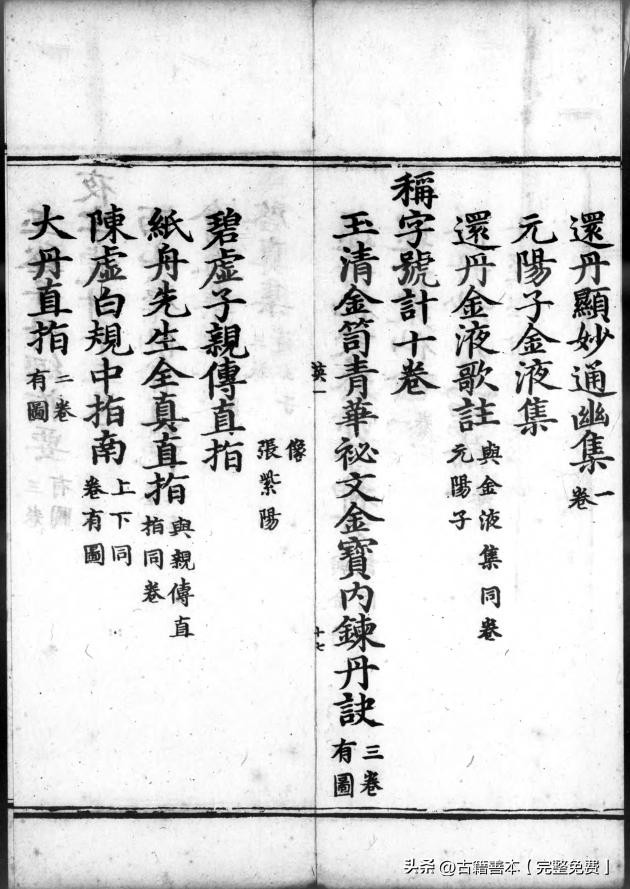 還丹顯妙通幽集一卷
元陽子金液集
還丹金液歌註與金液集同卷元陽子
稱字號計十卷
玉清金笥青華祕文金寶內鍊丹訣三卷有圖
英一
十七
像張紫陽
碧虛子親傳直指
紙舟先生全真直指與親傳直指同卷
陳虛白規中指南上下同卷有圖
大丹直指二卷有圖
头条 @古籍善本【完整免费】